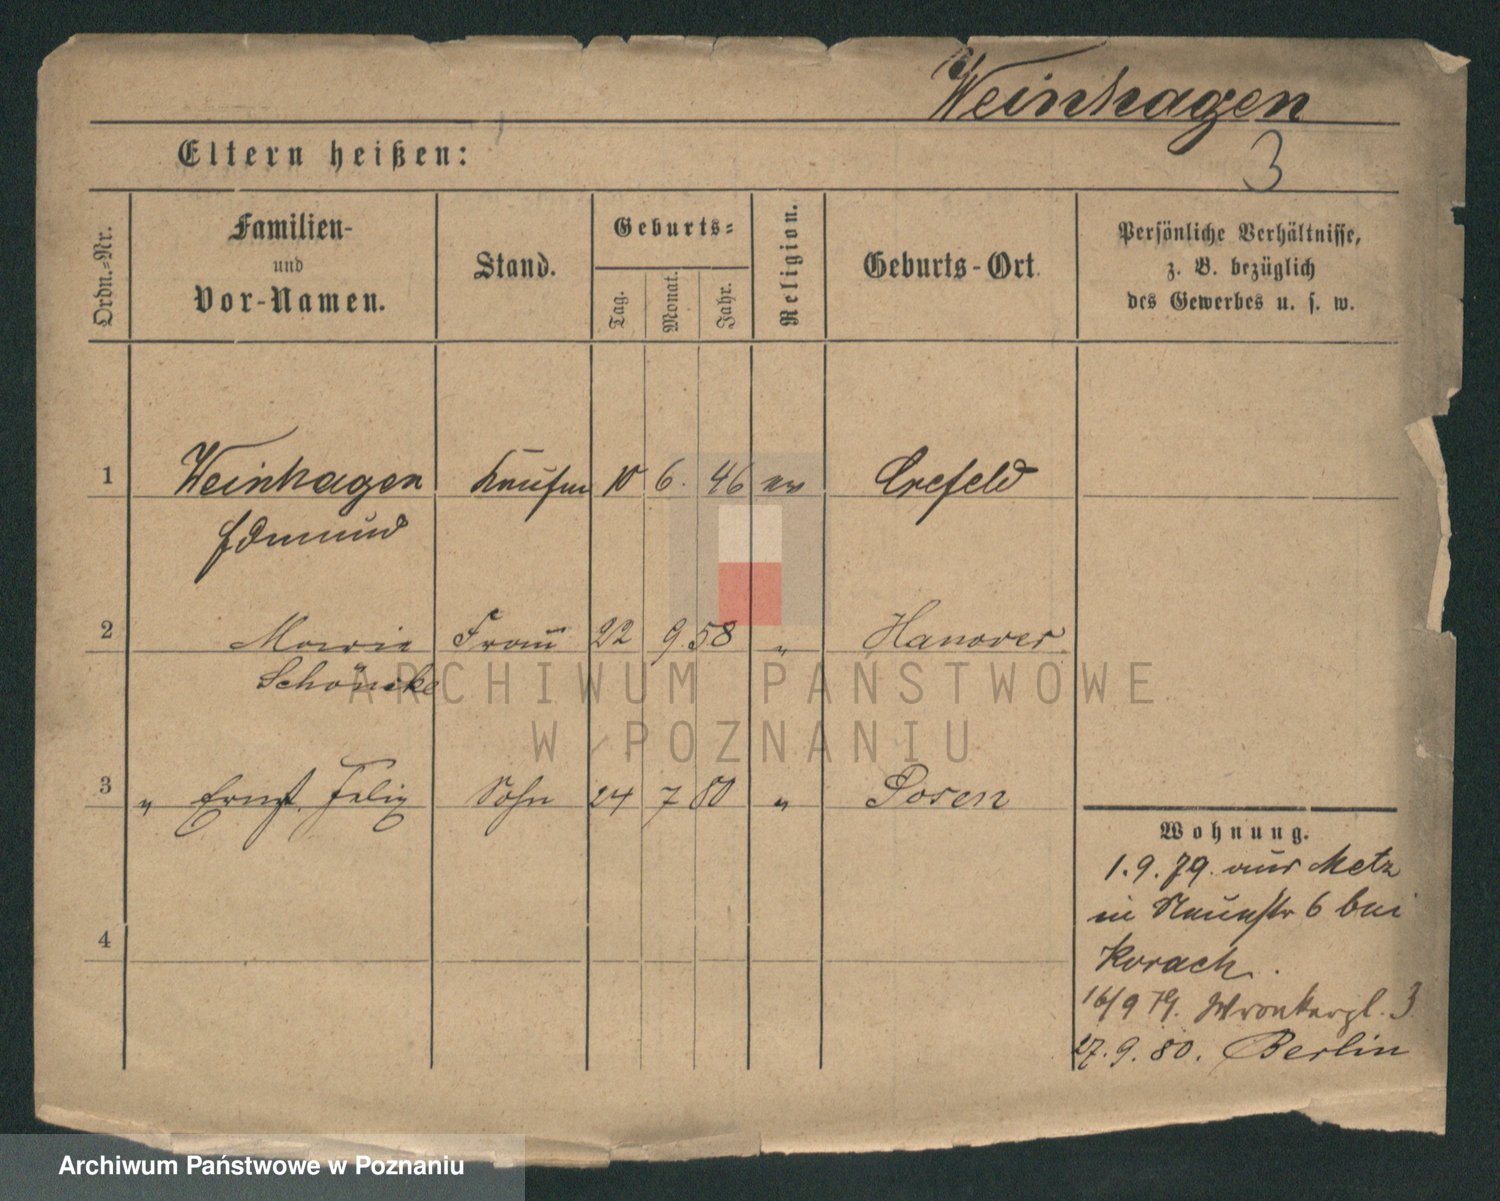 Weinhagen
3
Eltern heißen:
Ordn.-Nr.
Familien-
und
Vor-Namen.
Stand.
Geburts-
Tag.
Monat.
Jahr.
Religion.
Geburts-Ort
Persönliche Verhältnisse,
z. B. bezüglich
des Gewerbes u. s. w.
1 Weinhagen Kaufm 10 6. 46 ev Crefeld
Edmund
2 Marie Frau 22 9. 58 " Hanover
Schönicke
3 " Ernst, Felix Sohn 24 7 80 " Posen
4
Wohnung.
1.9.79. aus Metz
in 6 bei
Korach.
16/9 79. Wronkerpl. 3
27.9.80. Berlin
ARCHIWUM PAŃSTWOWE
W POZNANIU
Archiwum Państwowe w Poznaniu